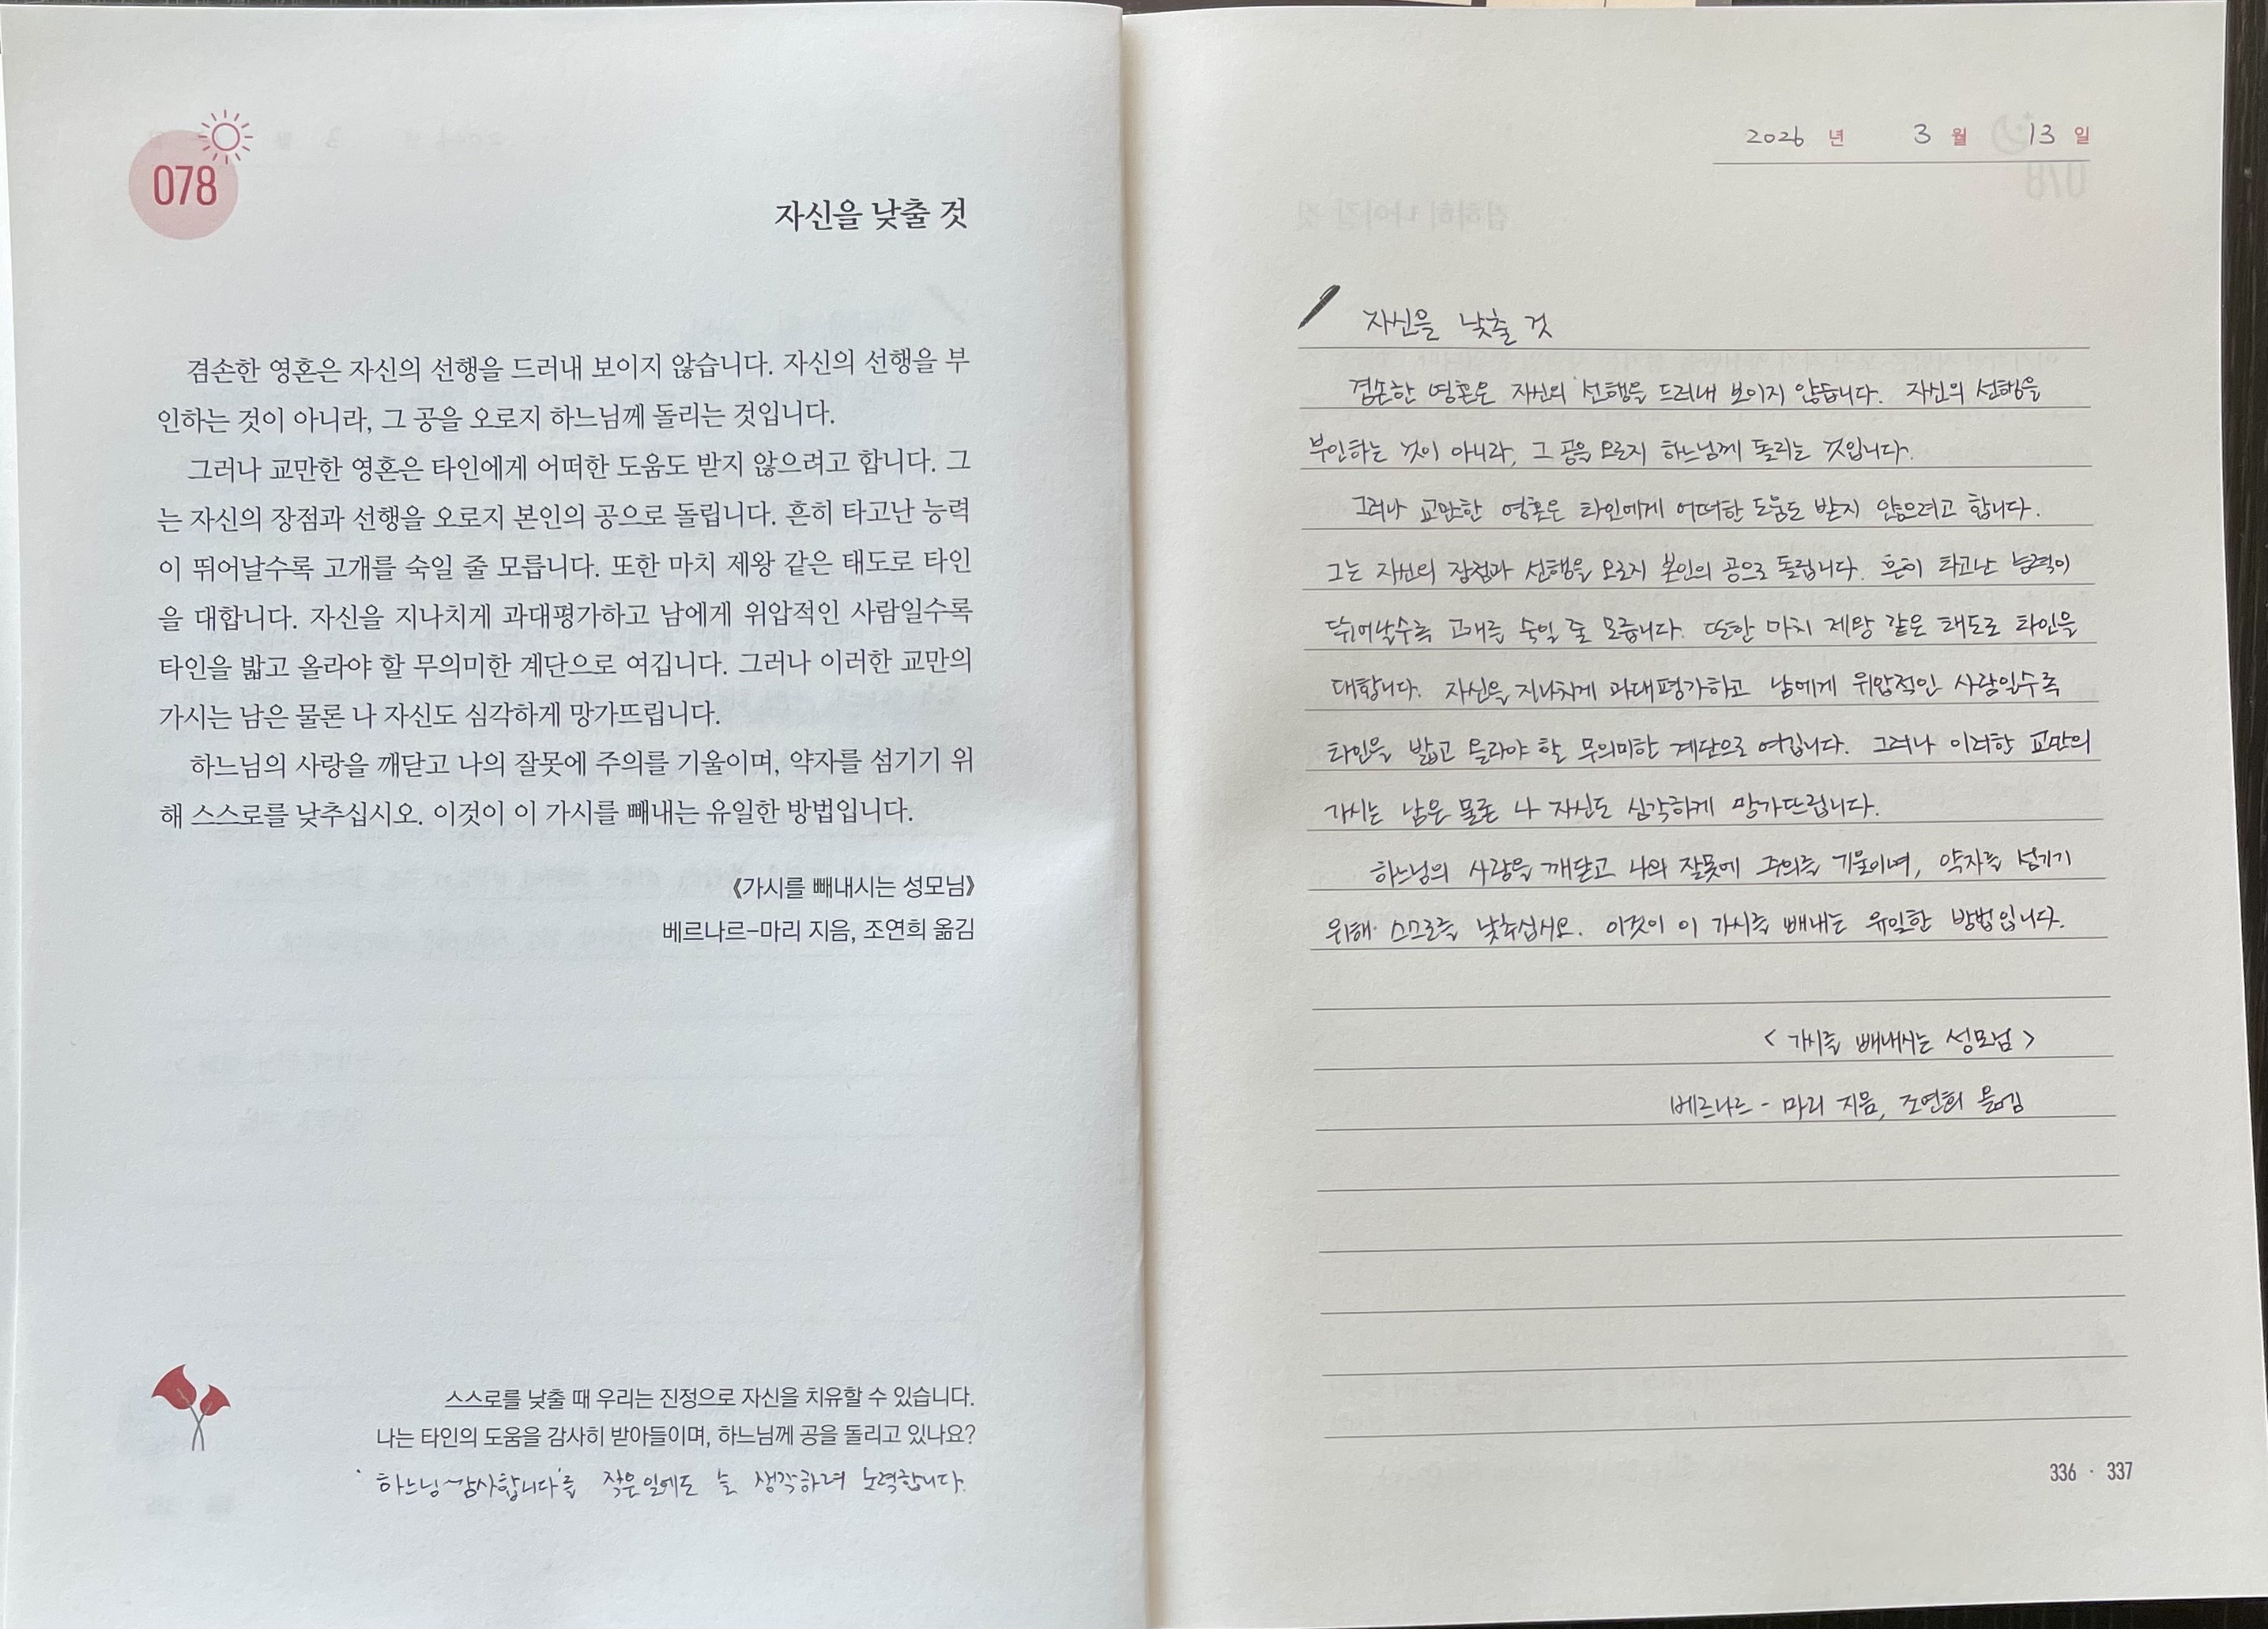 078
자신을 낮출 것
겸손한 영혼은 자신의 선행을 드러내 보이지 않습니다. 자신의 선행을 부
인하는 것이 아니라, 그 공을 오로지 하느님께 돌리는 것입니다.
그러나 교만한 영혼은 타인에게 어떠한 도움도 받지 않으려고 합니다. 그
는 자신의 장점과 선행을 오로지 본인의 공으로 돌립니다. 흔히 타고난 능력
이 뛰어날수록 고개를 숙일 줄 모릅니다. 또한 마치 제왕 같은 태도로 타인
을 대합니다. 자신을 지나치게 과대평가하고 남에게 위압적인 사람일수록
타인을 밟고 올라야 할 무의미한 계단으로 여깁니다. 그러나 이러한 교만의
가시는 남은 물론 나 자신도 심각하게 망가뜨립니다.
하느님의 사랑을 깨닫고 나의 잘못에 주의를 기울이며, 약자를 섬기기 위
해 스스로를 낮추십시오. 이것이 이 가시를 빼내는 유일한 방법입니다.
《가시를 빼내시는 성모님》
베르나르-마리 지음, 조연희 옮김
스스로를 낮출 때 우리는 진정으로 자신을 치유할 수 있습니다.
나는 타인의 도움을 감사히 받아들이며, 하느님께 공을 돌리고 있나요?
'하느님~감사합니다'를 작은일에도 늘 생각하려 노력합니다.
2026 년 3 월 13 일
자신을 낮출 것
겸손한 영혼은 자신의 선행을 드러내 보이지 않습니다. 자신의 선행을
부인하는 것이 아니라, 그 공을 오로지 하느님께 돌리는 것입니다.
그러나 교만한 영혼은 타인에게 어떠한 도움도 받지 않으려고 합니다.
그는 자신의 장점과 선행을 오로지 본인의 공으로 돌립니다. 흔히 타고난 능력이
뛰어날수록 고개를 숙일 줄 모릅니다. 또한 마치 제왕 같은 태도로 타인을
대합니다. 자신을 지나치게 과대평가하고 남에게 위압적인 사람일수록
타인을 밟고 올라야 할 무의미한 계단으로 여깁니다. 그러나 이러한 교만의
가시는 남은 물론 나 자신도 심각하게 망가뜨립니다.
하느님의 사랑을 깨닫고 나의 잘못에 주의를 기울이며, 약자를 섬기기
위해 스스로를 낮추십시오. 이것이 이 가시를 빼내는 유일한 방법입니다.
< 가시를 빼내시는 성모님 >
베르나르 - 마리 지음, 조연희 옮김
336 · 337